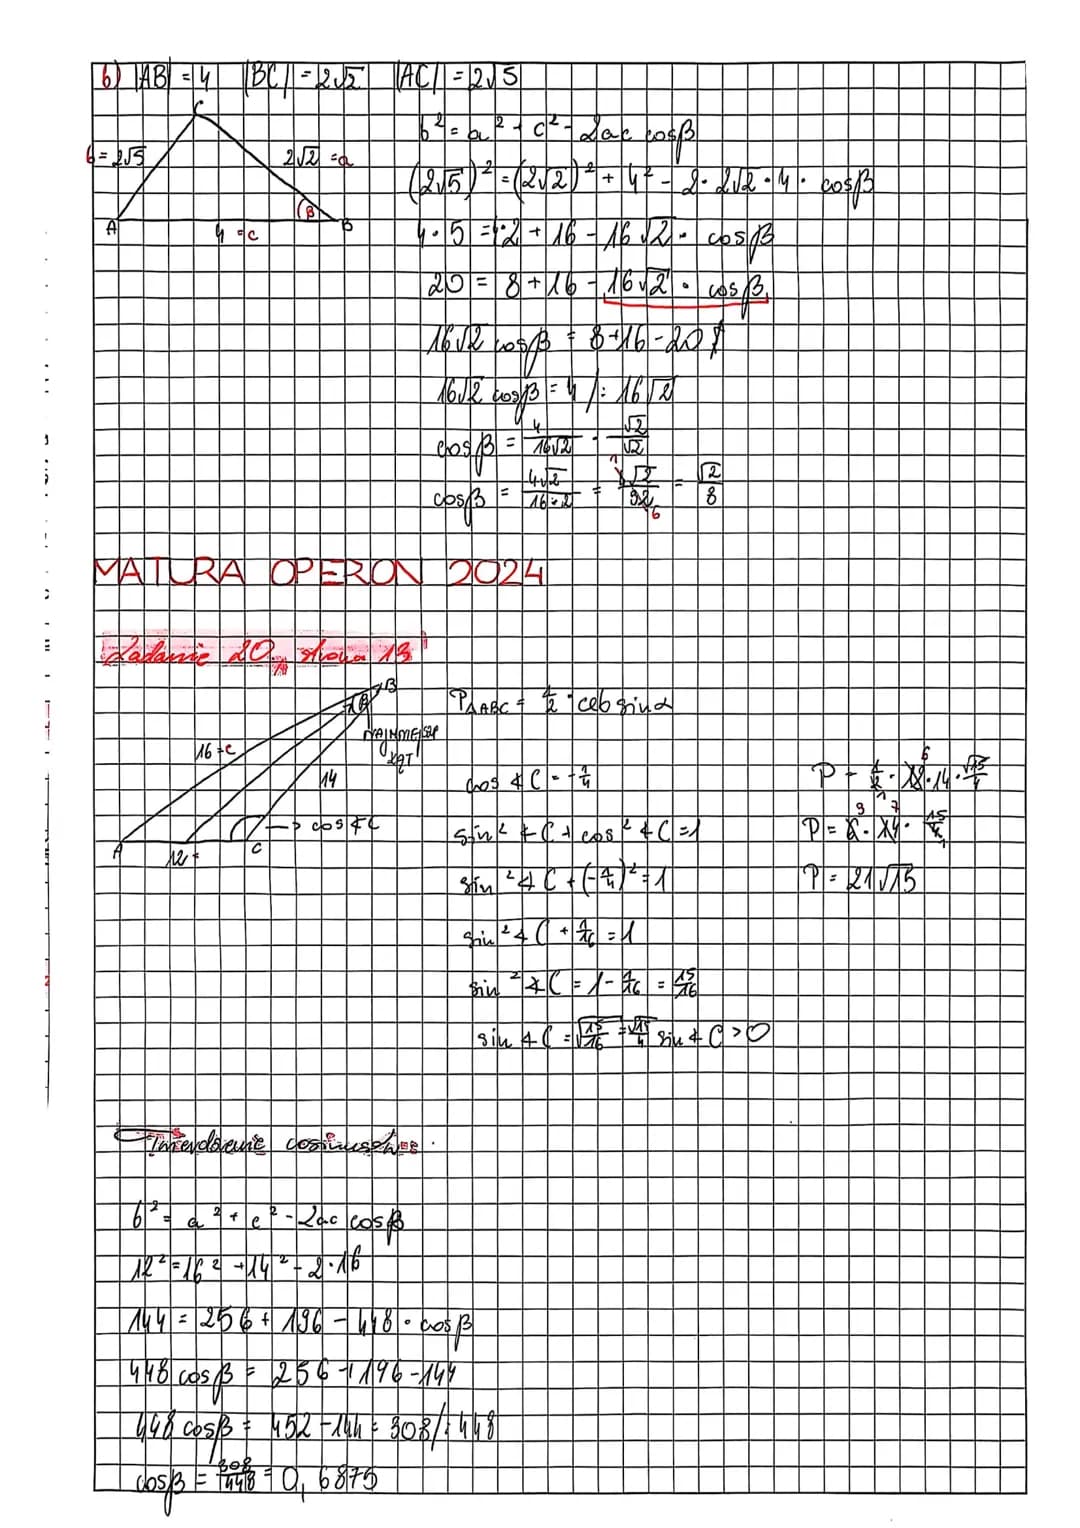 b) |AB| = 4 |BC| = 2√2 |AC| = 2√5
C
b = 2√5
2√2 = a
β
A
4 = c
B
b² = a² + c² - 2ac cosβ
(2√5)² = (2√2)² + 4² - 2 · 2√2 · 4 · cosβ
4 · 5 = 4·2 + 16 - 16√2 · cosβ
20 = 8 + 16 - 16√2 · cosβ
16√2 cosβ = 8+16-20
16√2 cosβ = 4 /: 16√2
cosβ = 4/16√2 · √2/√2
cosβ = 4√2/16·2 = √2/8
MATURA OPERON 2024
Zadanie 20, strona 13
B
β
NAJMNIEJSZY
KĄT
16 = c
14
→ cos∢C
A
12
C
P△ABC = 1/2 · c·b sinα
cos∢C = -1/4
sin²∢C + cos²∢C = 1
sin²∢C + (-1/4)² = 1
sin²∢C + 1/16 = 1
sin²∢C = 1 - 1/16 = 15/16
sin∢C = √15/16 = √15/4 sin∢C > 0
P = 1/2 · 12 · 14 · √15/4
P = 21√15
Twierdzenie cosinusów
b² = a² + c² - 2ac cosβ
12² = 16² + 14² - 2·16
144 = 256 + 196 - 448 · cosβ
448 cosβ = 256 + 196 - 144
448 cosβ = 452 - 144 = 308/: 448
cosβ = 308/448 = 0,6875